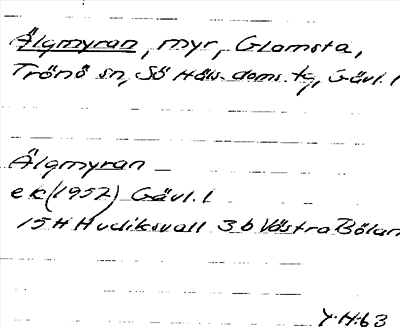 Älgmyran, myr, Glamsta,
Trönö sn, Sö Häls. doms. tg, Gävl. l
Älgmyran –
ek (1957) Gävl. l
15H Hudiksvall 3b Västra Bölan
Y.H.63